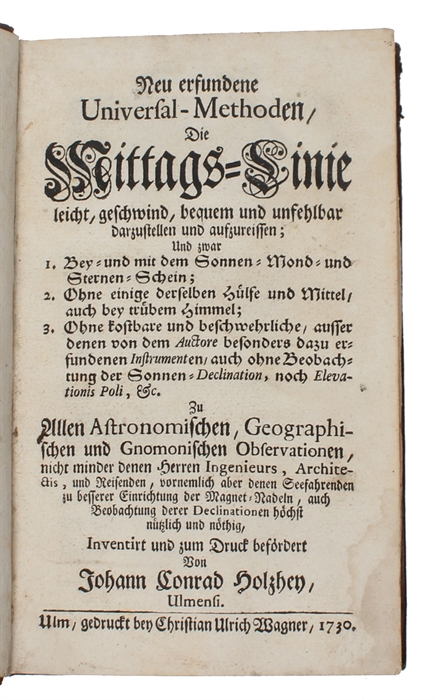 Neu erfundene
Universal-Methoden/
Die
Mittags-Linie
leicht/ geschwind/ bequem und unfehlbar
darzustellen und aufzureissen;
Und zwar
1. Bey- und mit dem Sonnen- Mond- und
Sternen-Schein;
2. Ohne einige derselben Hülfe und Mittel/
auch bey trübem Himmel;
3. Ohne kostbare und beschwehrliche/ ausser
denen von dem Auctore besonders dazu er-
fundenen Instrumenten/ auch ohne Beobach-
tung der Sonnen-Declination, noch Eleva-
tionis Poli, &c.
Zu
Allen Astronomischen, Geographi-
schen und Gnomonischen Observationen,
nicht minder denen Herren Ingenieurs, Archite-
ctis, und Reisenden, vornemlich aber denen Seefahrenden
zu besserer Einrichtung der Magnet-Nadeln, auch
Beobachtung derer Declinationen höchst
nützlich und nöthig,
Inventirt und zum Druck befördert
Von
Johann Conrad Holzhey,
Ulmensi.
Ulm, gedruckt bey Christian Ulrich Wagner, 1730.